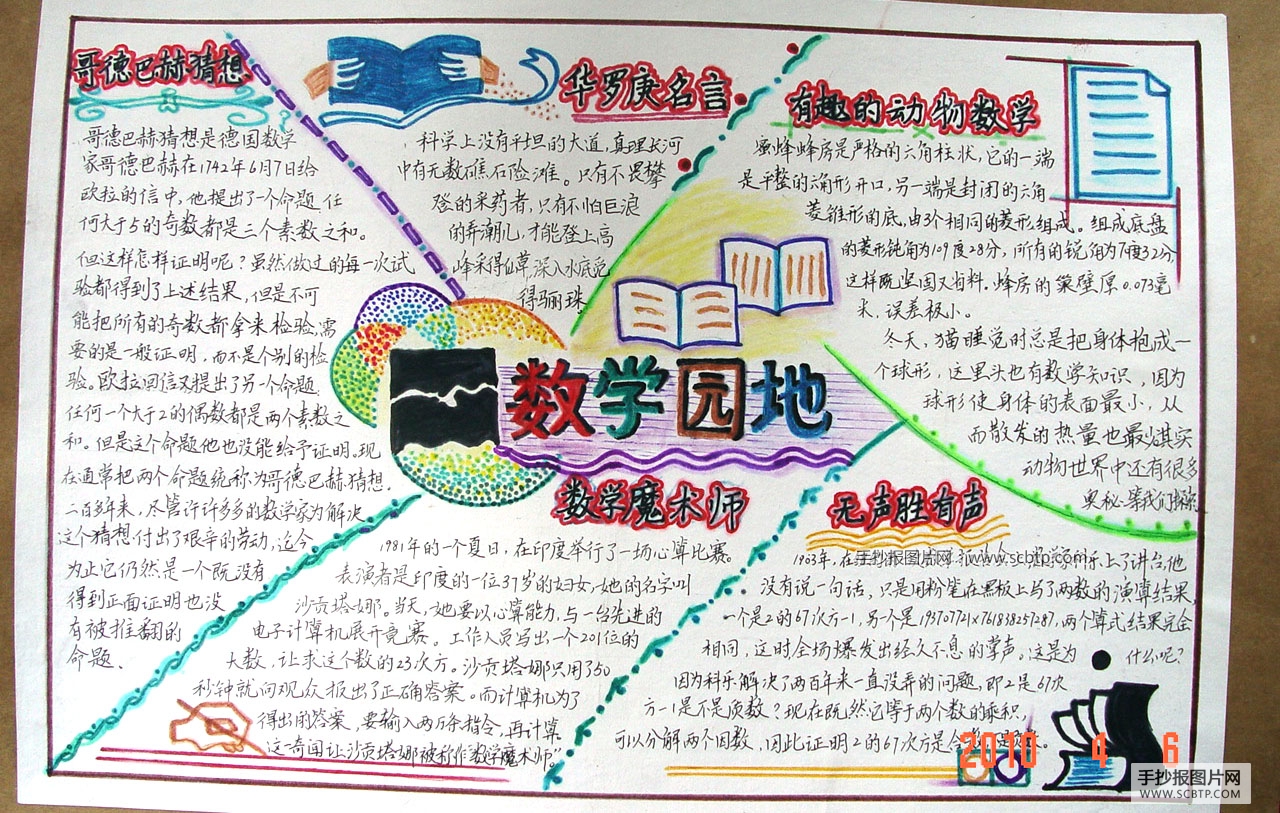 哥德巴赫猜想
哥德巴赫猜想是德国数学
家哥德巴赫在1742年6月7日给
欧拉的信中,他提出了一个命题.任
何大于5的奇数都是三个素数之和。
但这样怎样证明呢?虽然做过的每一次试
验都得到了上述结果,但是不可
能把所有的奇数都拿来检验,需
要的是一般证明,而不是个别的检
验。欧拉回信又提出了另一个命题.
任何一个大于2的偶数都是两个素数之
和。但是这个命题他也没能给予证明.现
在通常把两个命题统称为哥德巴赫猜想.
二百多年来,尽管许许多多的数学家为解决
这个猜想付出了艰辛的劳动,迄今
为止它仍然是一个既没有
得到正面证明也没
有被推翻的
命题.
华罗庚名言
科学上没有平坦的大道,真理长河
中有无数礁石险滩。只有不畏攀
登的采药者,只有不怕巨浪
的弄潮儿,才能登上高
峰采得仙草,深入水底觅
得骊珠.
有趣的动物数学
蜜蜂蜂房是严格的六角柱状,它的一端
是平整的六角形开口,另一端是封闭的六角
菱锥形的底,由3个相同的菱形组成。组成底盘
的菱形钝角为109度28分,所有的锐角为70度32分,
这样既坚固又省料。蜂房的巢壁厚0.073毫
米,误差极小。
冬天,猫睡觉时总是把身体抱成一
个球形,这里头也有数学知识,因为
球形使身体的表面最小,从
而散发的热量也最少.其实
动物世界中还有很多
奥秘等我们探索
数学园地
数学魔术师
1981年的一个夏日,在印度举行了一场心算比赛。
表演者是印度的一位37岁的妇女,她的名字叫
沙贡塔娜。当天,她要以心算能力,与一台先进的
电子计算机展开竞赛。工作人员写出一个201位的
大数,让求这个数的23次方。沙贡塔娜只用了50
秒钟就向观众报出了正确答案。而计算机为了
得出的答案,要输入两万条指令,再计算。
这一奇闻让沙贡塔娜被称作"数学魔术师".
无声胜有声
1903年,在 上了讲台,他
没有说一句话,只是用粉笔在黑板上写了两数的演算结果,
一个是2的67次方-1,另个是193707721×761838257287,两个算式结果完全
相同,这时全场爆发出经久不息的掌声。这是为 什么呢?
因为科乐解决了两百年来一直没弄的问题,即2是67次
方-1是不是质数?现在既然它等于两个数的乘积,
可以分解两个因数,因此证明2的67次方是合
手抄报图片网 www.scbtp.com
2010 4 6
手抄报图片网
WWW.SCBTP.COM